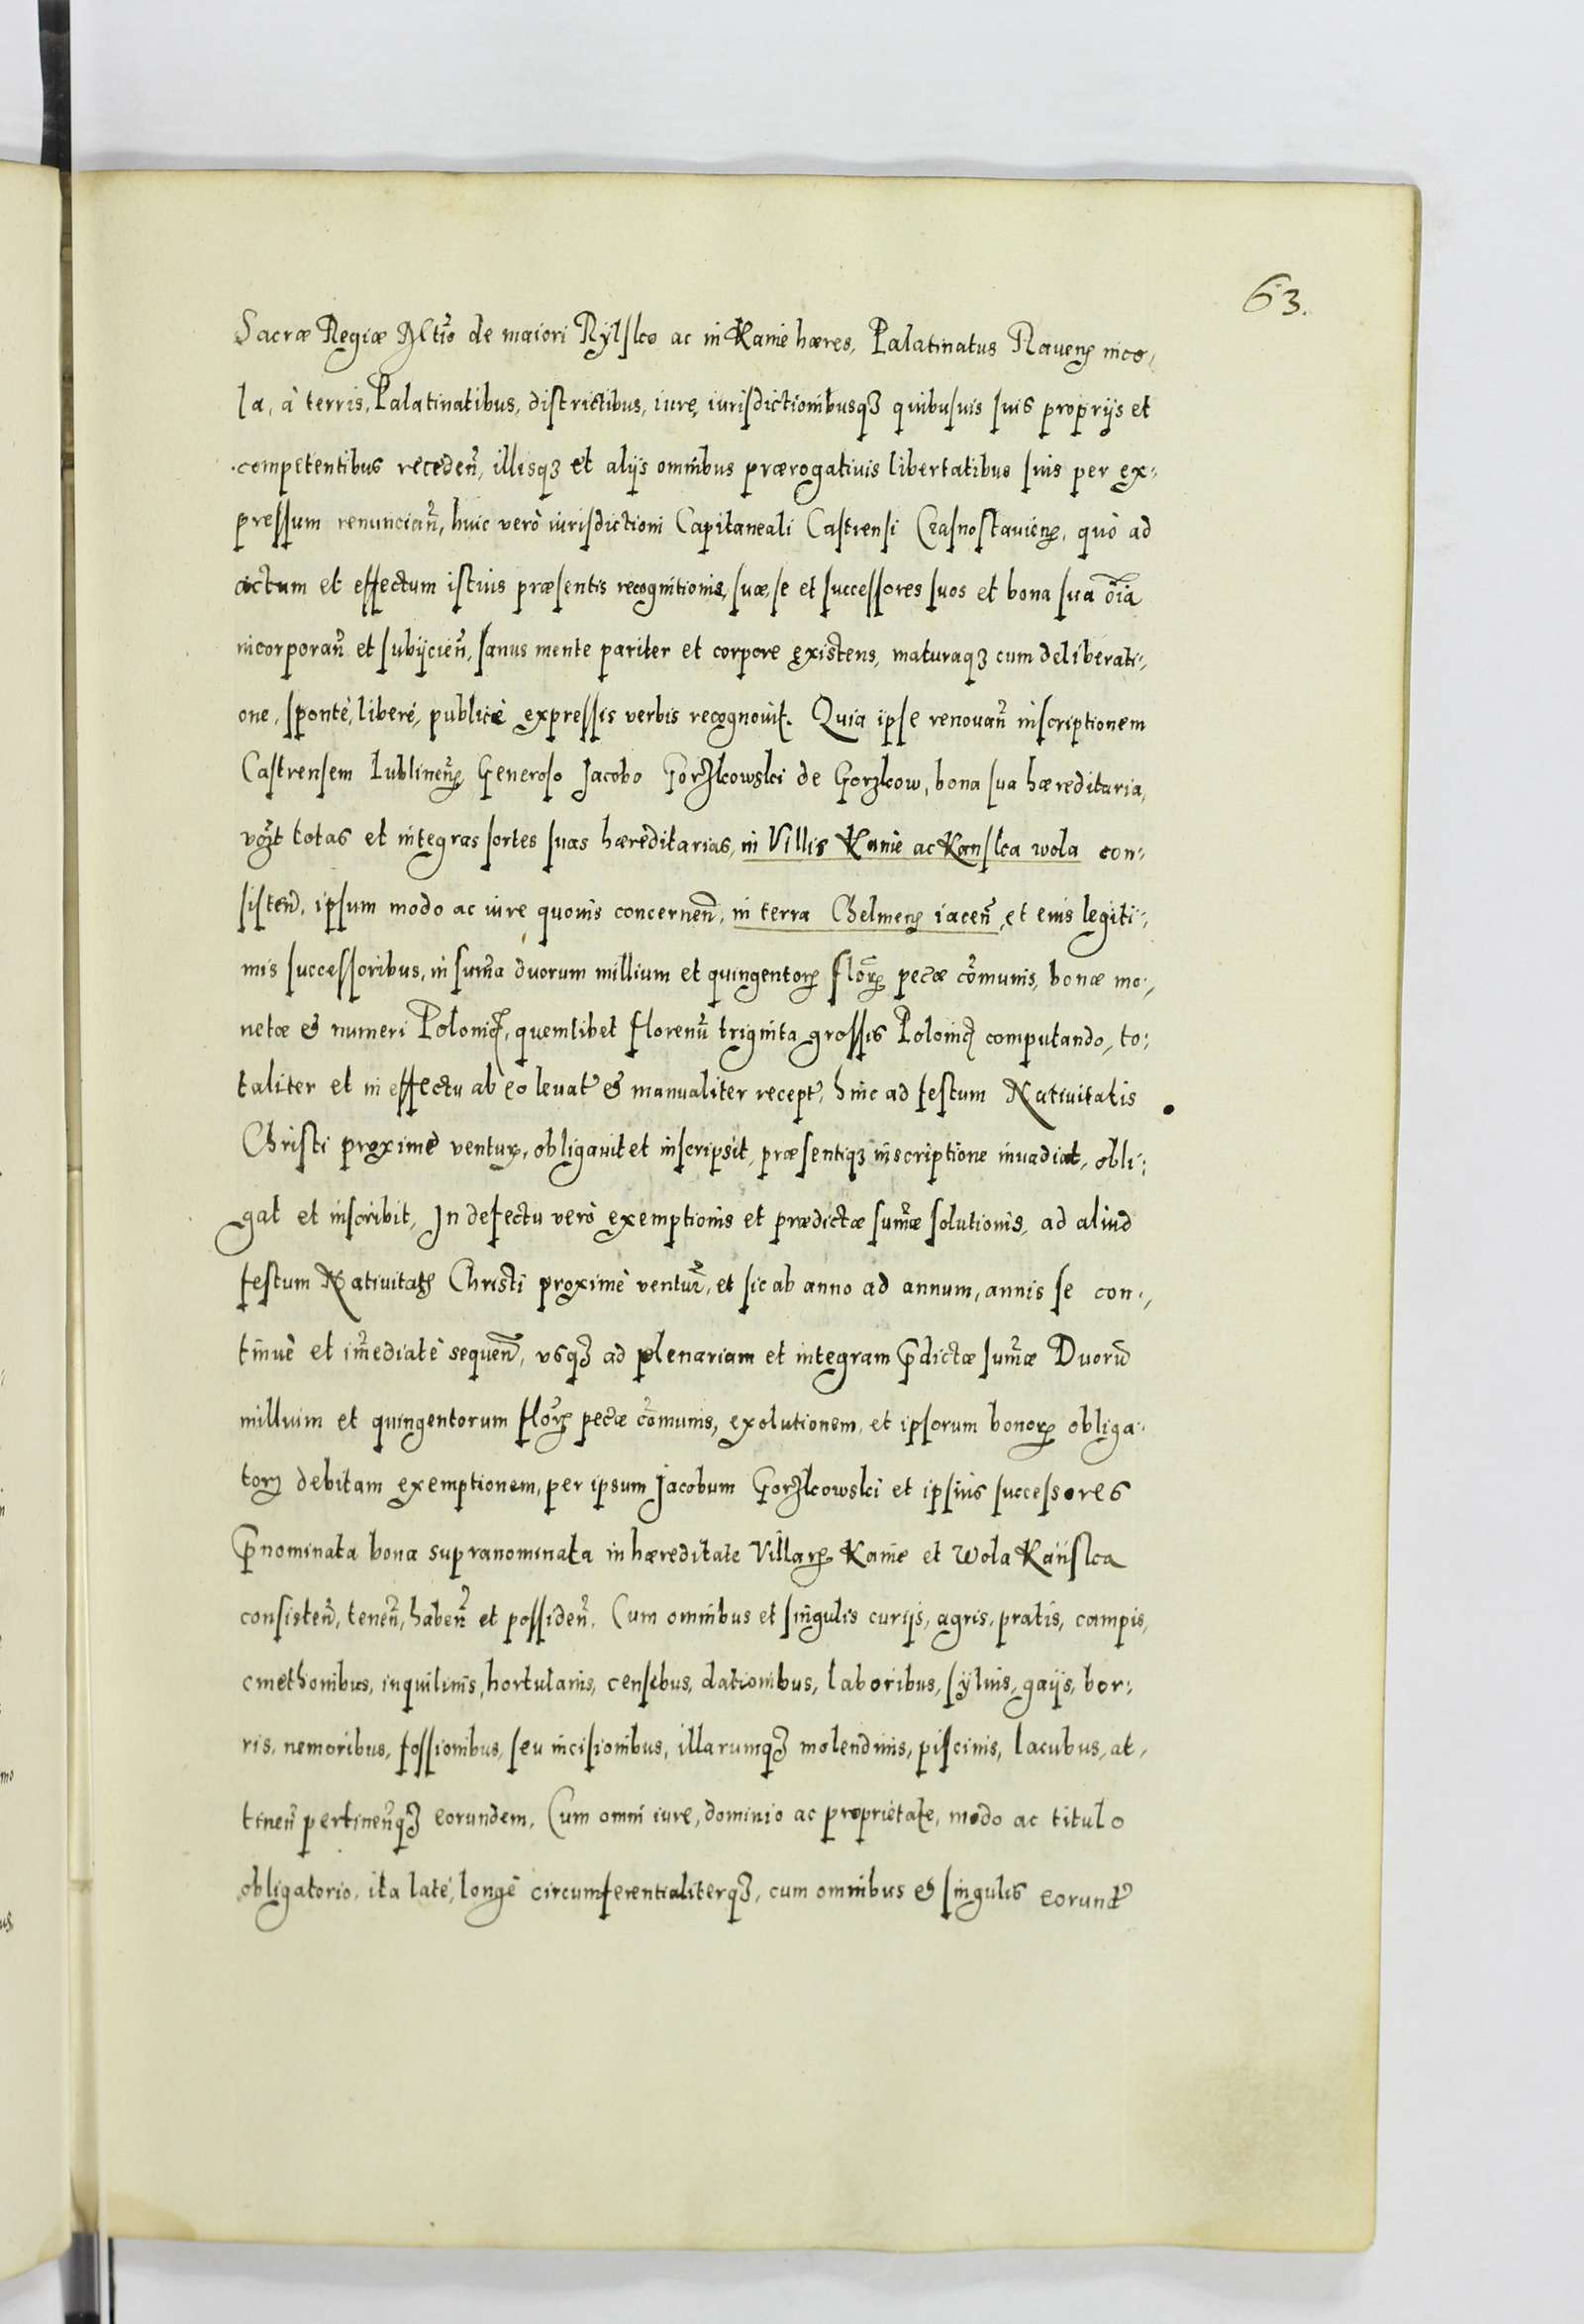 63.
Sacræ Regiæ Mtĩs de maiori Rylsko ac in Kanie hæres, Palatinatus Rauenꝭ inco,
la, à terris, Palatinatibus, districtibus, iure, iurisdictionibusqꝫ quibusuis suis proprijs et
competentibus receden̄, illisqꝫ et alijs omnibus prærogatiuis libertatibus suis per ex,
pressum renuncian̄, huic verò iurisdictioni Capitaneali Castrensi Crasnostauienꝭ, quò ad
actum et effectum istius præsentis recognitionis, suæ, se et successores suos et bona sua oĩa
incorporan̄ et subijcien̄, sanus mente pariter et corpore existens, maturaqꝫ cum deliberati,
one, spontè, liberè, publicè expressis verbis recognouit. Quia ipse renouan̄ inscriptionem
Castrensem Lublinen̄ꝭ Generoso Jacobo Gorzkowski de Gorzkow, bona sua hæreditaria,
vꝫt totas et integras sortes suas hæreditarias, in Villis Kanie ac Kanska wola con,
sisten̄, ipsum modo ac iure quouis concernen̄, in terra Chelmenꝭ iacen̄, et eius legiti,
mis successoribus, in sum̃a duorum millium et quingentorꝭ florꝭ pec̃æ cõmunis, bonæ mo,
netæ & numeri Polonicꝭ, quemlibet florenũ triginta grossis Polonicꝭ computando, to,
taliter et in effectu ab eo leuat̃ & manualiter recept̃, hinc ad festum Natiuitatis
Christi proximè venturꝭ, obligauit et inscripsit, præsentiqꝫ inscriptione inuadiat, obli,
gat et inscribit, In defectu verò exemptionis et prædictæ sum̃æ solutionis, ad aliud
festum Natiuitatꝭ Christi proximè ventur̃, et sic ab anno ad annum, annis se con,
tinuè et im̃ediatè sequen̄, vsqꝫ ad plenariam et integram p̃dictæ sum̃æ Duorũ
millium et quingentorum florꝭ pec̃æ cõmunis, exolutionem, et ipsorum bonorꝭ obliga,
torꝭ debitam exemptionem, per ipsum Jacobum Gorzkowski et ipsius successores
p̃nominata bona supranominata in hæreditate Villarꝭ Kanie et Wola Kańska
consisten̄, tenen̄, haben̄ et possiden̄. Cum omnibus et singulis curijs, agris, pratis, campis,
cmethonibus, inquilinis, hortulanis, censibus, dationibus, laboribus, syluis, gaijs, bor,
ris, nemoribus, fossionibus, seu incisionibus, illarumqꝫ molendinis, piscinis, lacubus, at,
tinen̄ pertinen̄qꝫ eorundem, Cum omni iure, dominio ac proprietate, modo ac titulo
obligatorio, ita latè, longè circumferentialiterqꝫ, cum omnibus & singulis eorund̃